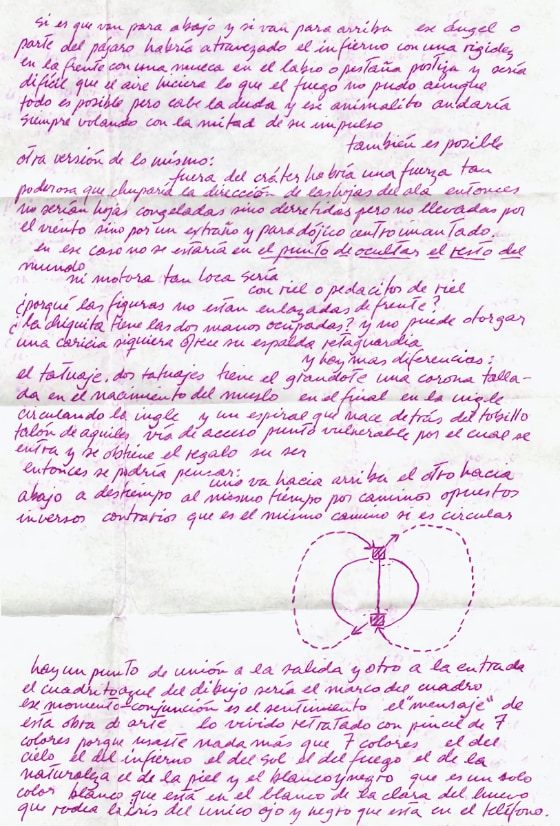 si es que van para abajo y si van para arriba ese ángel o
parte del pájaro habría atravezado el infierno con una rigidez
en la frente con una mueca en el labio o pestaña postiza y sería
difícil que el aire hiciera lo que el fuego no pudo aunque
todo es posible pero cabe la duda y ese animalito andaría
siempre volando con la mitad de su impulso
también es posible
otra versión de lo mismo:
fuera del cráter habría una fuerza tan
poderosa que chuparía la dirección de las hojas del ala entonces
no serían hojas congeladas sino derretidas pero no llevadas por
el viento sino por un extraño y paradójico centro imantado
en ese caso no se estaría en el punto de ocultar el resto del
mundo
ni motora tan loca sería
con riel o pedacitos de riel
¿porqué las figuras no estan enlazadas de frente?
¿la chiquita tiene las dos manos ocupadas? y no puede otorgar
una caricia siquiera ofrece su espalda retaguardia
y hay mas diferencias:
el tatuaje. dos tatuajes tiene el grandote una corona talla-
da en el nacimiento del muslo en el final en la ingle
circulando la ingle y un espiral que nace detrás del tobillo
talón de aquiles vía de acceso punto vulnerable por el cual se
entra y se obtiene el regalo su ser
entonces se podría pensar:
uno va hacia arriba el otro hacia
abajo a destiempo al mismo tiempo por caminos opuestos
inversos contrarios que es el mismo camino si es circular
hay un punto de unión a la salida y otro a la entrada
el cuadrito azul del dibujo sería el marco del cuadro
ese momento-conjunción es el sentimiento el "mensaje" de
esta obra de arte lo vivido retratado con pincel de 7
colores porque usaste nada más que 7 colores el del
cielo el del infierno el del sol el del fuego el de la
naturaleza el de la piel y el blanco y negro que es un solo
color blanco que está en el blanco de la clara del huevo
que rodea la iris del unico ojo y negro que está en el teléfono.